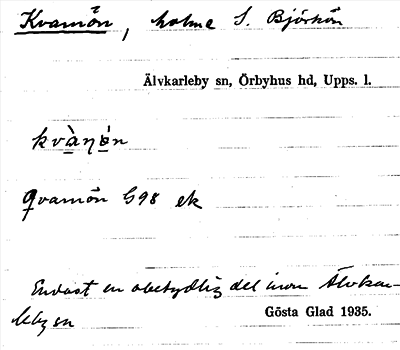 Kvarnön, holme S. Björkön
Älvkarleby sn, Örbyhus hd, Upps. l.
kvànɔ́n
Qvarnön G98 ek
Endast en obetydlig del inom Älvkar-
leby sn
Gösta Glad 1935.